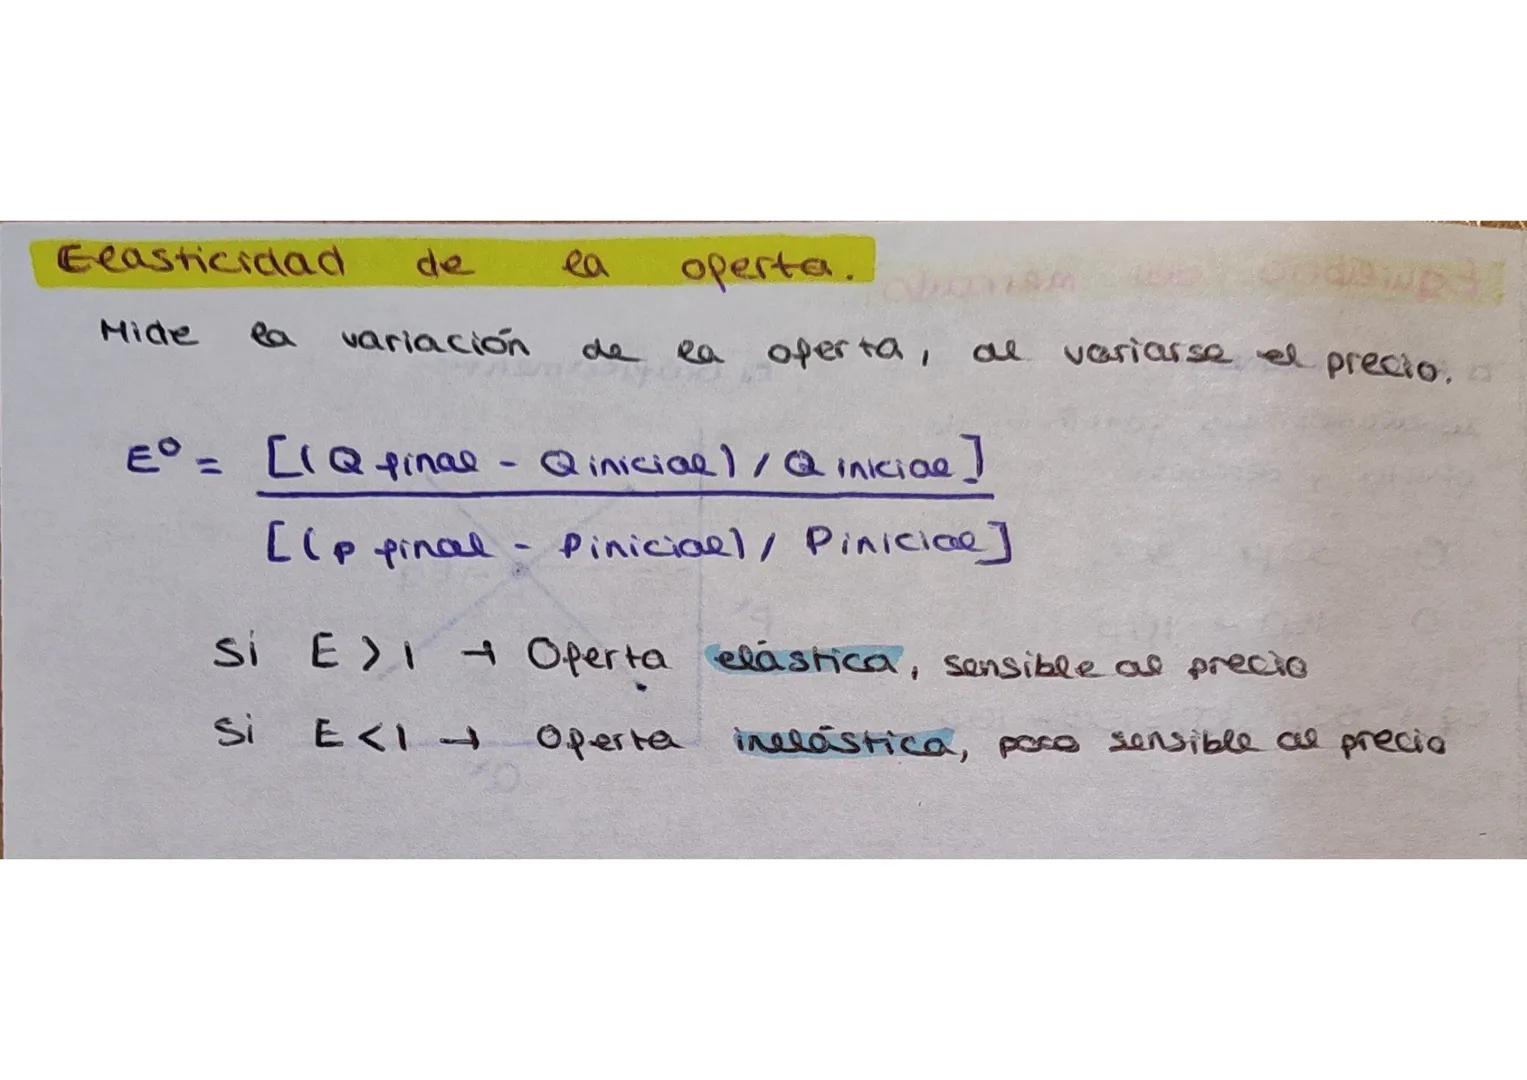 Elasticidad de la oferta.
Mide la variación de la oferta, al variarse el precio.
E⁰ = [(Q final - Q inicial) / Q inicial]
[(P final - P inicial) / P inicial]
Si E > 1 → Oferta elástica, sensible al precio
Si E < 1 → Oferta inelástica, poco sensible al precio